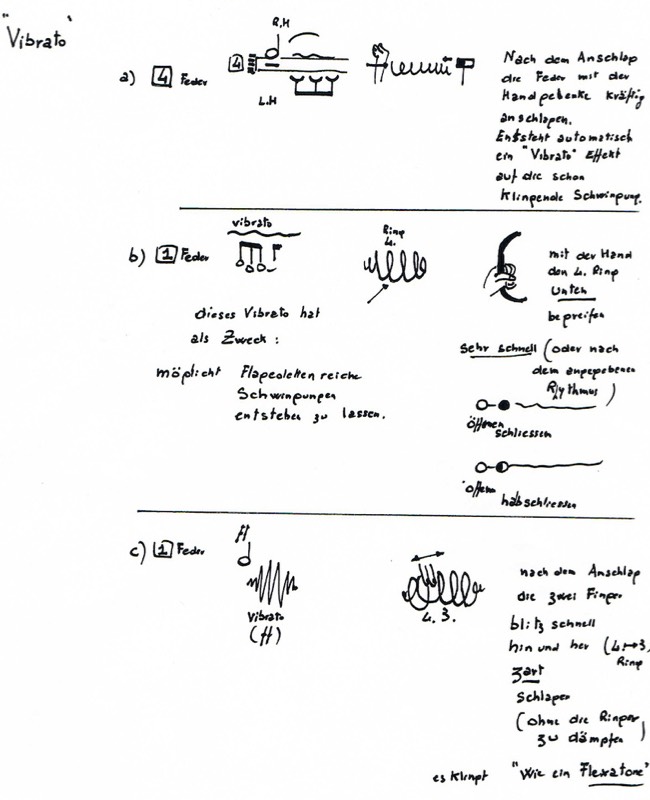 "Vibrato"
R.H
a) 4 Feder
4
L.H
Nach dem Anschlag
die Feder mit der
Handgelenke kräftig
anschlagen.
Entsteht automatisch
ein "Vibrato" Effekt
auf die schon
klingende Schwingung.
vibrato
b) 1 Feder
Ring
4.
mit der Hand
den 4. Ring
Unten
begreifen
dieses Vibrato hat
als Zweck :
möglicht Flageoletten reiche
Schwingungen
entstehen zu lassen.
Sehr schnell (oder nach
dem angegebenen
Rhythmus)
öffenen
schliessen
öffenen
habschliessen
c) 1 Feder
ff
Vibrato
(ff)
4. 3.
nach dem Anschlag
die zwei Finger
blitz schnell
hin und her (4.↔3.
Ring
zart
schlagen
(ohne die Ringe
zu dämpfen)
es klingt "Wie ein Flexatone"